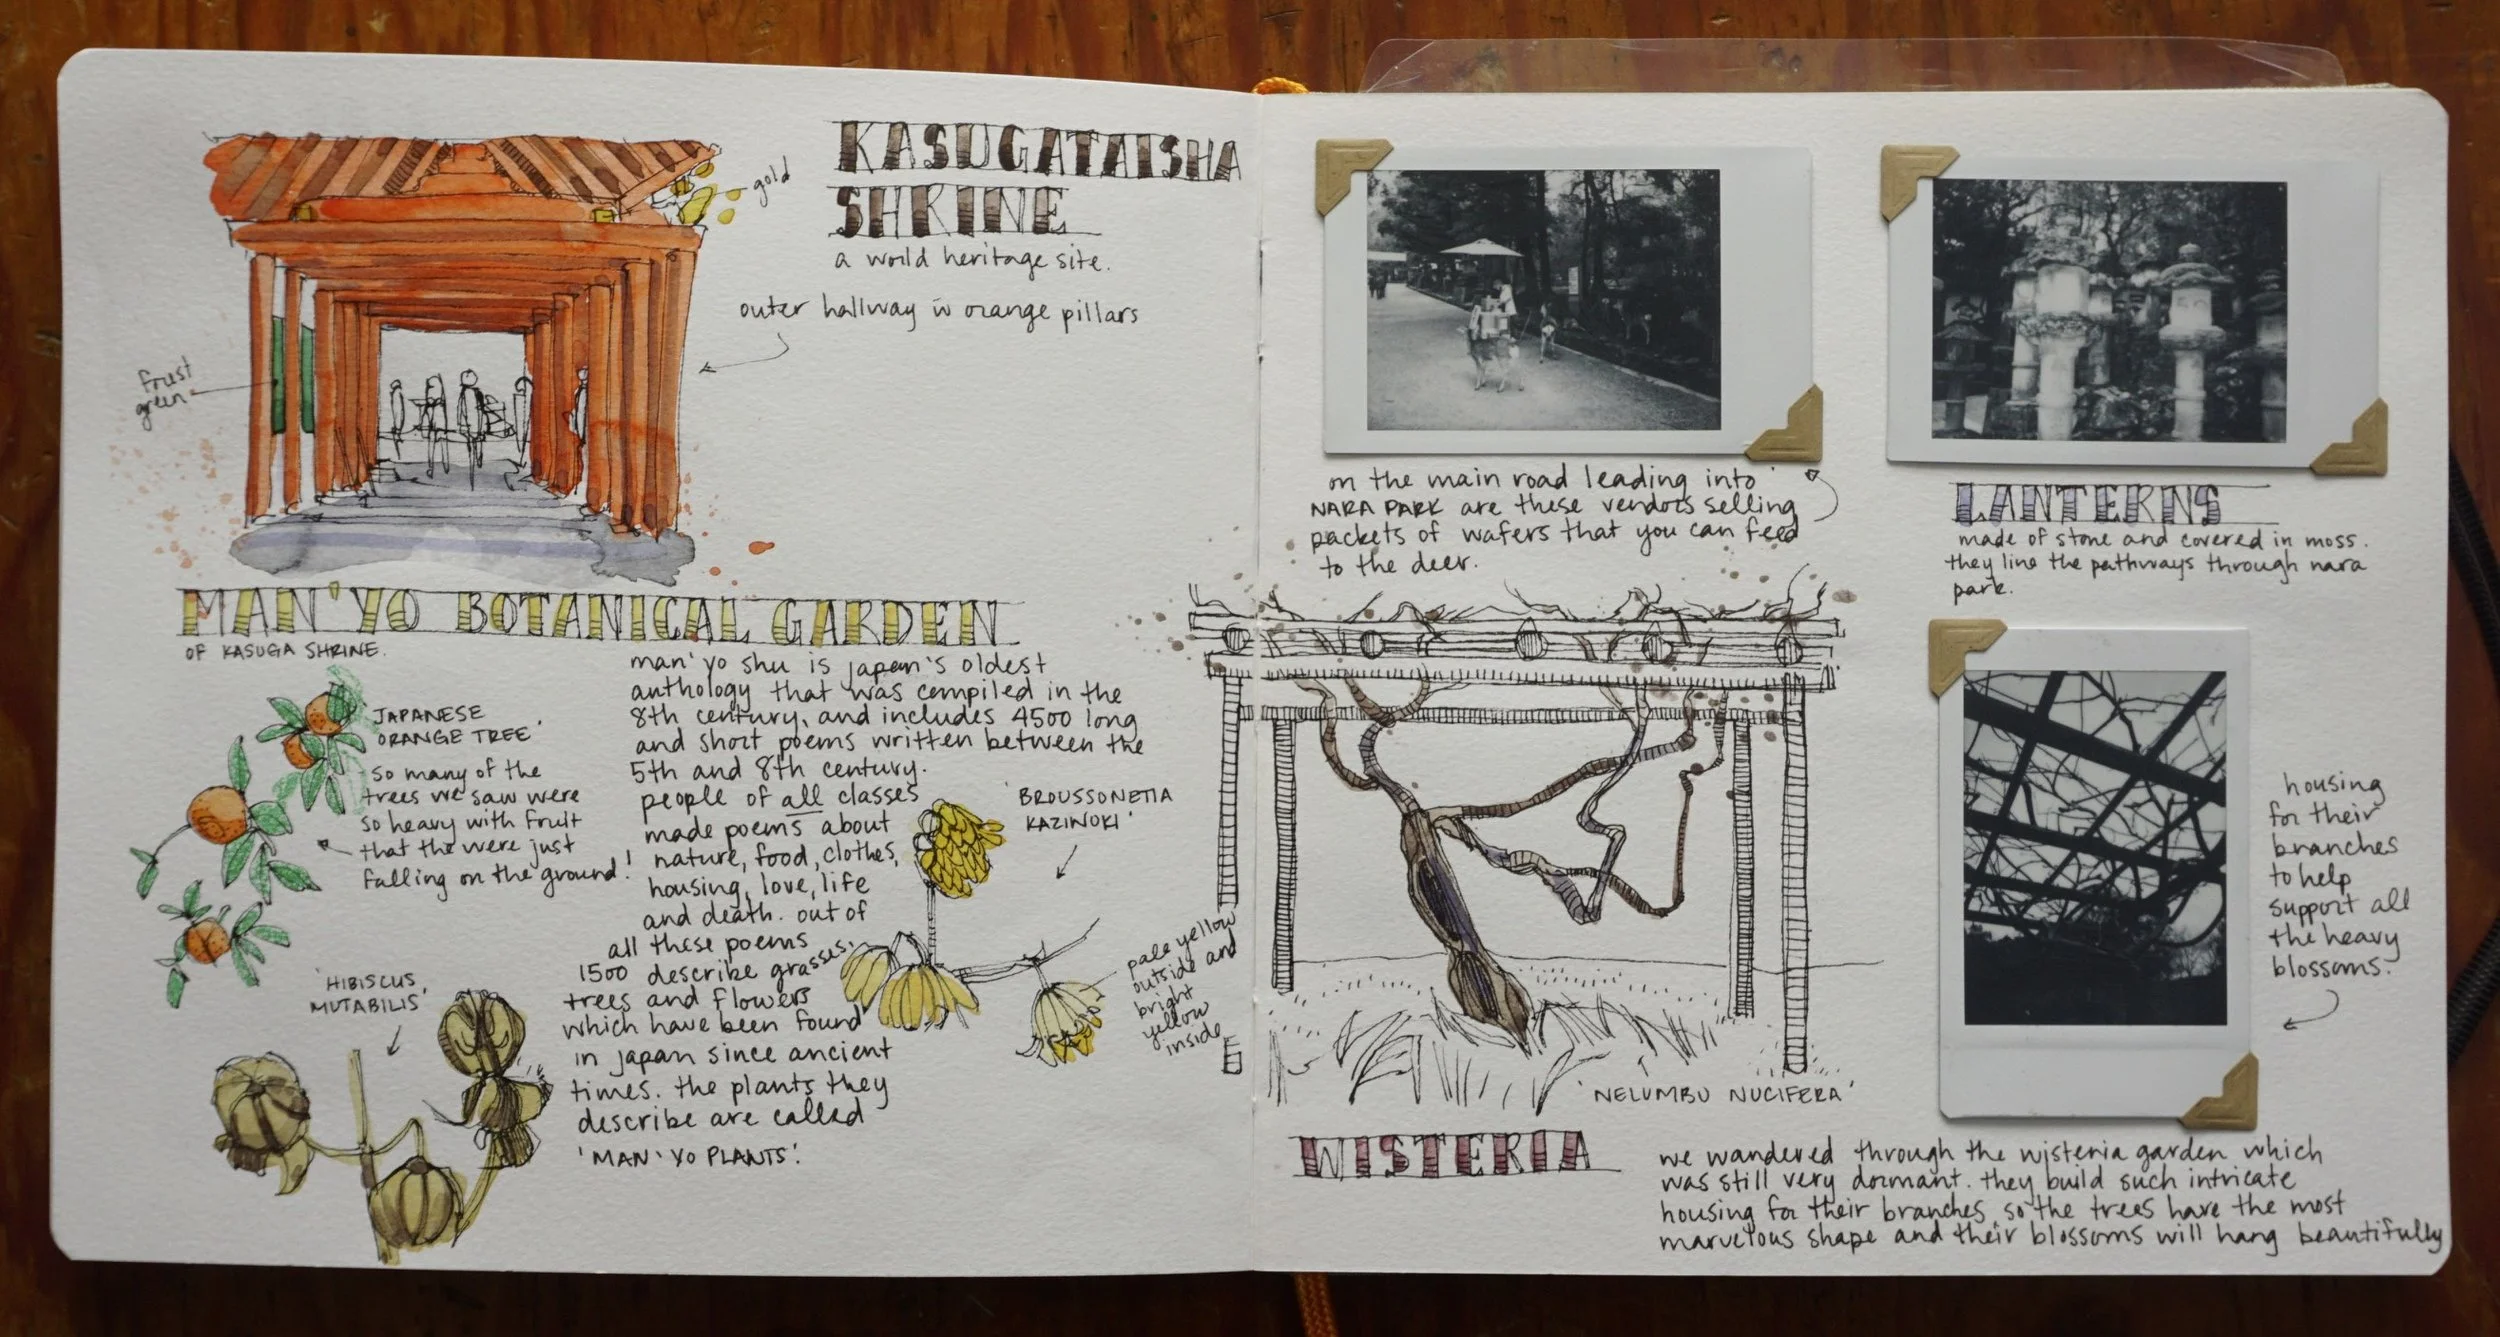 KASUGATAISHA
SHRINE
a world heritage site.
gold
outer hallway w orange pillars
frust
green
MAN'YO BOTANICAL GARDEN
OF KASUGA SHRINE.
'JAPANESE
ORANGE TREE'
so many of the
trees we saw were
so heavy with fruit
that the were just
falling on the ground!
'HIBISCUS
MUTABILIS'
man'yo shu is japan's oldest
anthology that was compiled in the
8th century, and includes 4500 long
and short poems written between the
5th and 8th century.
people of all classes
made poems about
nature, food, clothes,
housing, love, life
and death. out of
all these poems
1500 describe grasses,
trees and flowers
which have been found
in japan since ancient
times. the plants they
describe are called
'MAN'YO PLANTS'.
'BROUSSONETIA
KAZINOKI'
pale yellow
outside and
bright
yellow
inside
on the main road leading into
NARA PARK are these vendors selling
packets of wafers that you can feed
to the deer.
LANTERNS
made of stone and covered in moss.
they line the pathways through nara
park.
housing
for their
branches
to help
support all
the heavy
blossoms.
'NELUMBU NUCIFERA'
WISTERIA
we wandered through the wisteria garden which
was still very dormant. they build such intricate
housing for their branches so the trees have the most
marvelous shape and their blossoms will hang beautifully